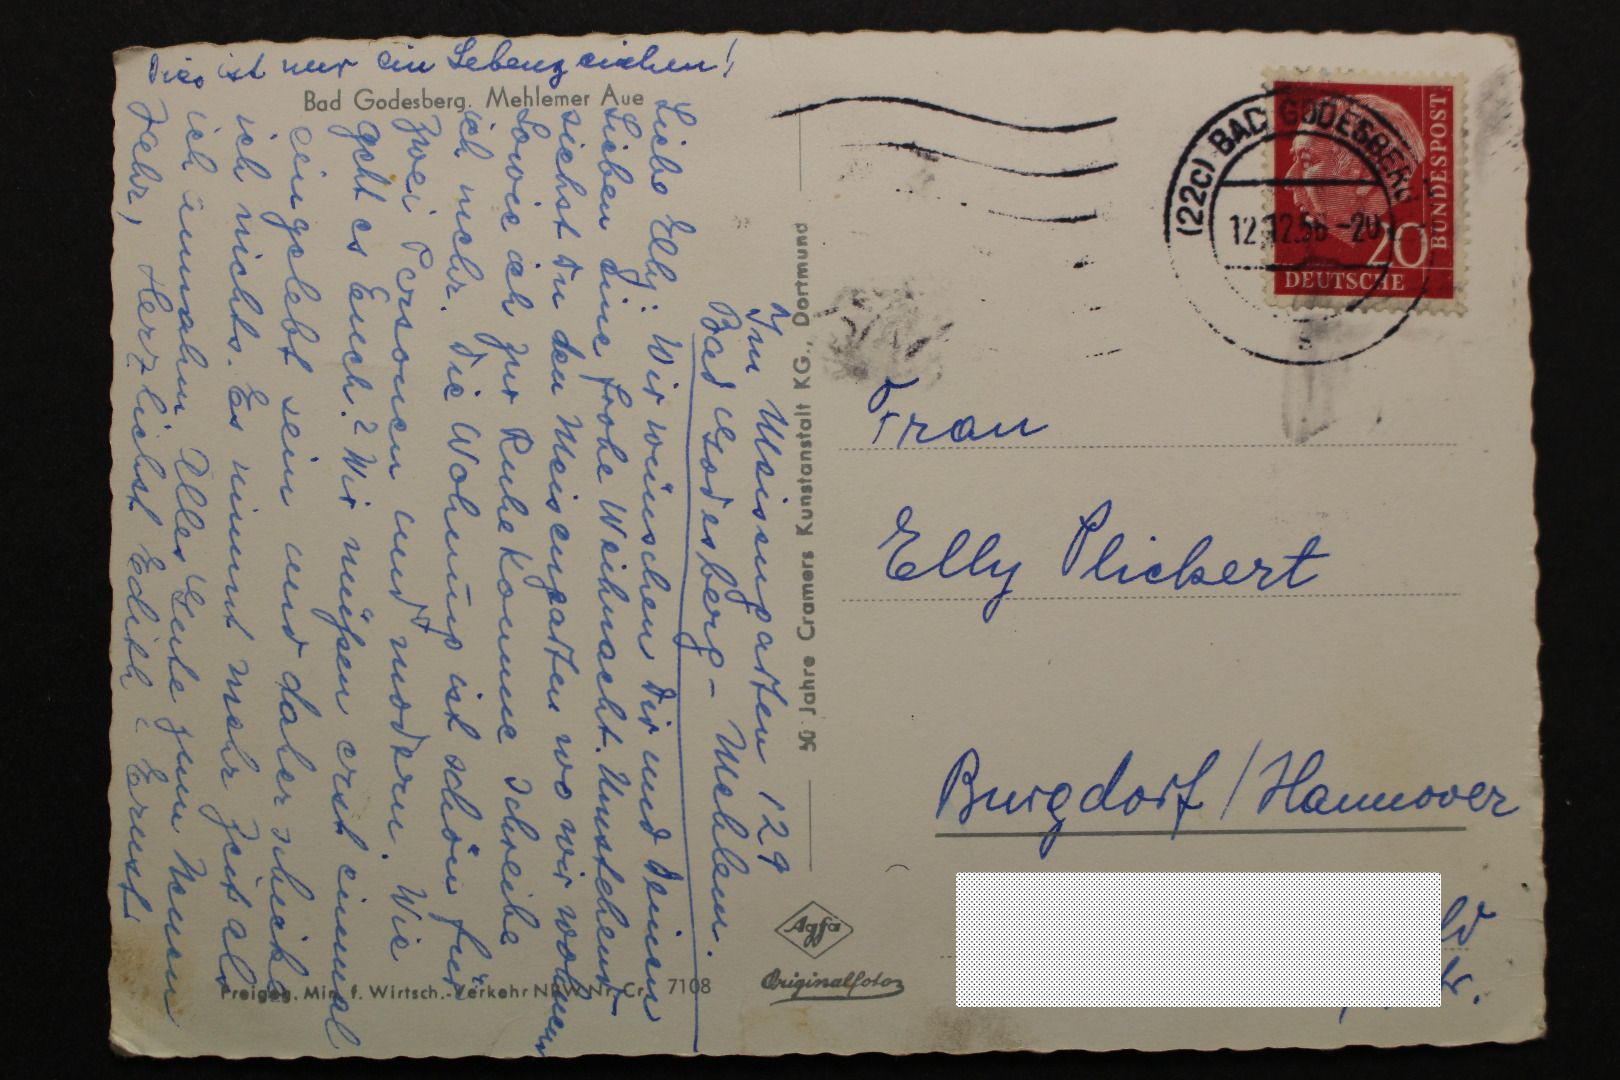 Dies ist nur ein Lebenszeichen!
Bad Godesberg. Mehlemer Aue
Im Meisengarten 129
Bad Godesberg - Mehlem.
Liebe Elly! Wir wünschen Dir und Deinen
Lieben eine frohe Weihnacht. Umstehend
siehst Du den Meisengarten wo wir wohnen
Sowie ich zur Ruhe komme schreibe
ich mehr. Die Wohnung ist schön für
zwei Personen und modern. Wie
geht es Euch? Wir müßen erst einmal
eingelebt sein und daher schicke
ich nichts. Es nimmt mehr Zeit als
ich annahm Alles Gute zum Neuen
Jahr, Herzlichst Edith u. Ernst
Freigeg. Min. f. Wirtsch.-Verkehr NRW Nr. Cr. 7108
50 Jahre Cramers Kunstanstalt KG., Dortmund
Agfa
Originalfoto
(22c) BAD GODESBERG
12.12.56 -20
s
20
DEUTSCHE
BUNDESPOST
Frau
Elly Plickert
Burgdorf/Hannover